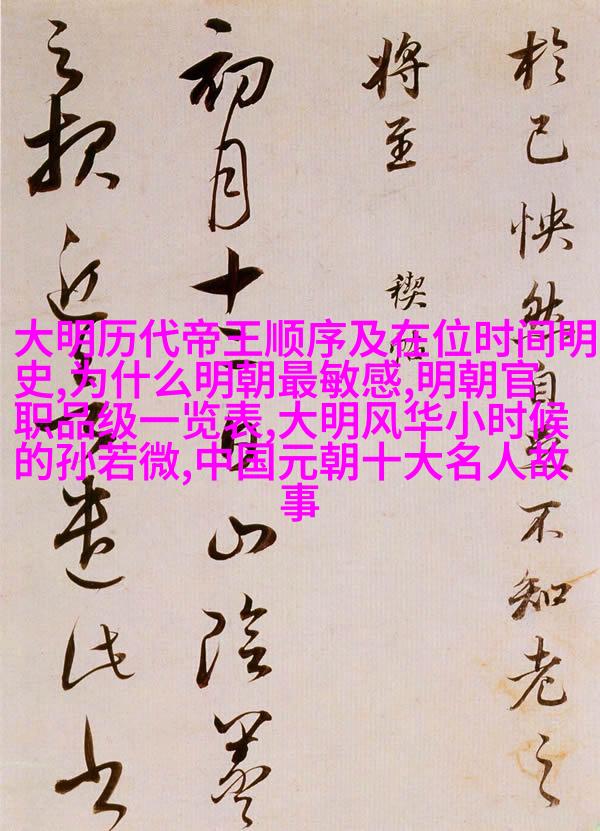 於己怏然自足不知老之
將至
禊帖
初月十二日山陰羲
之報近欲遣此書
大明历代帝王顺序及在位时间明
史,为什么明朝最敏感,明朝官
职品级一览表,大明风华小时候
的孙若微,中国元朝十大名人故
事